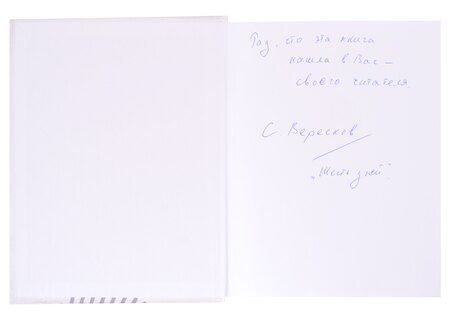 Рад, что эта книга
нашла в Вас —
своего читателя.
С. Вересков
"Шесть дней".